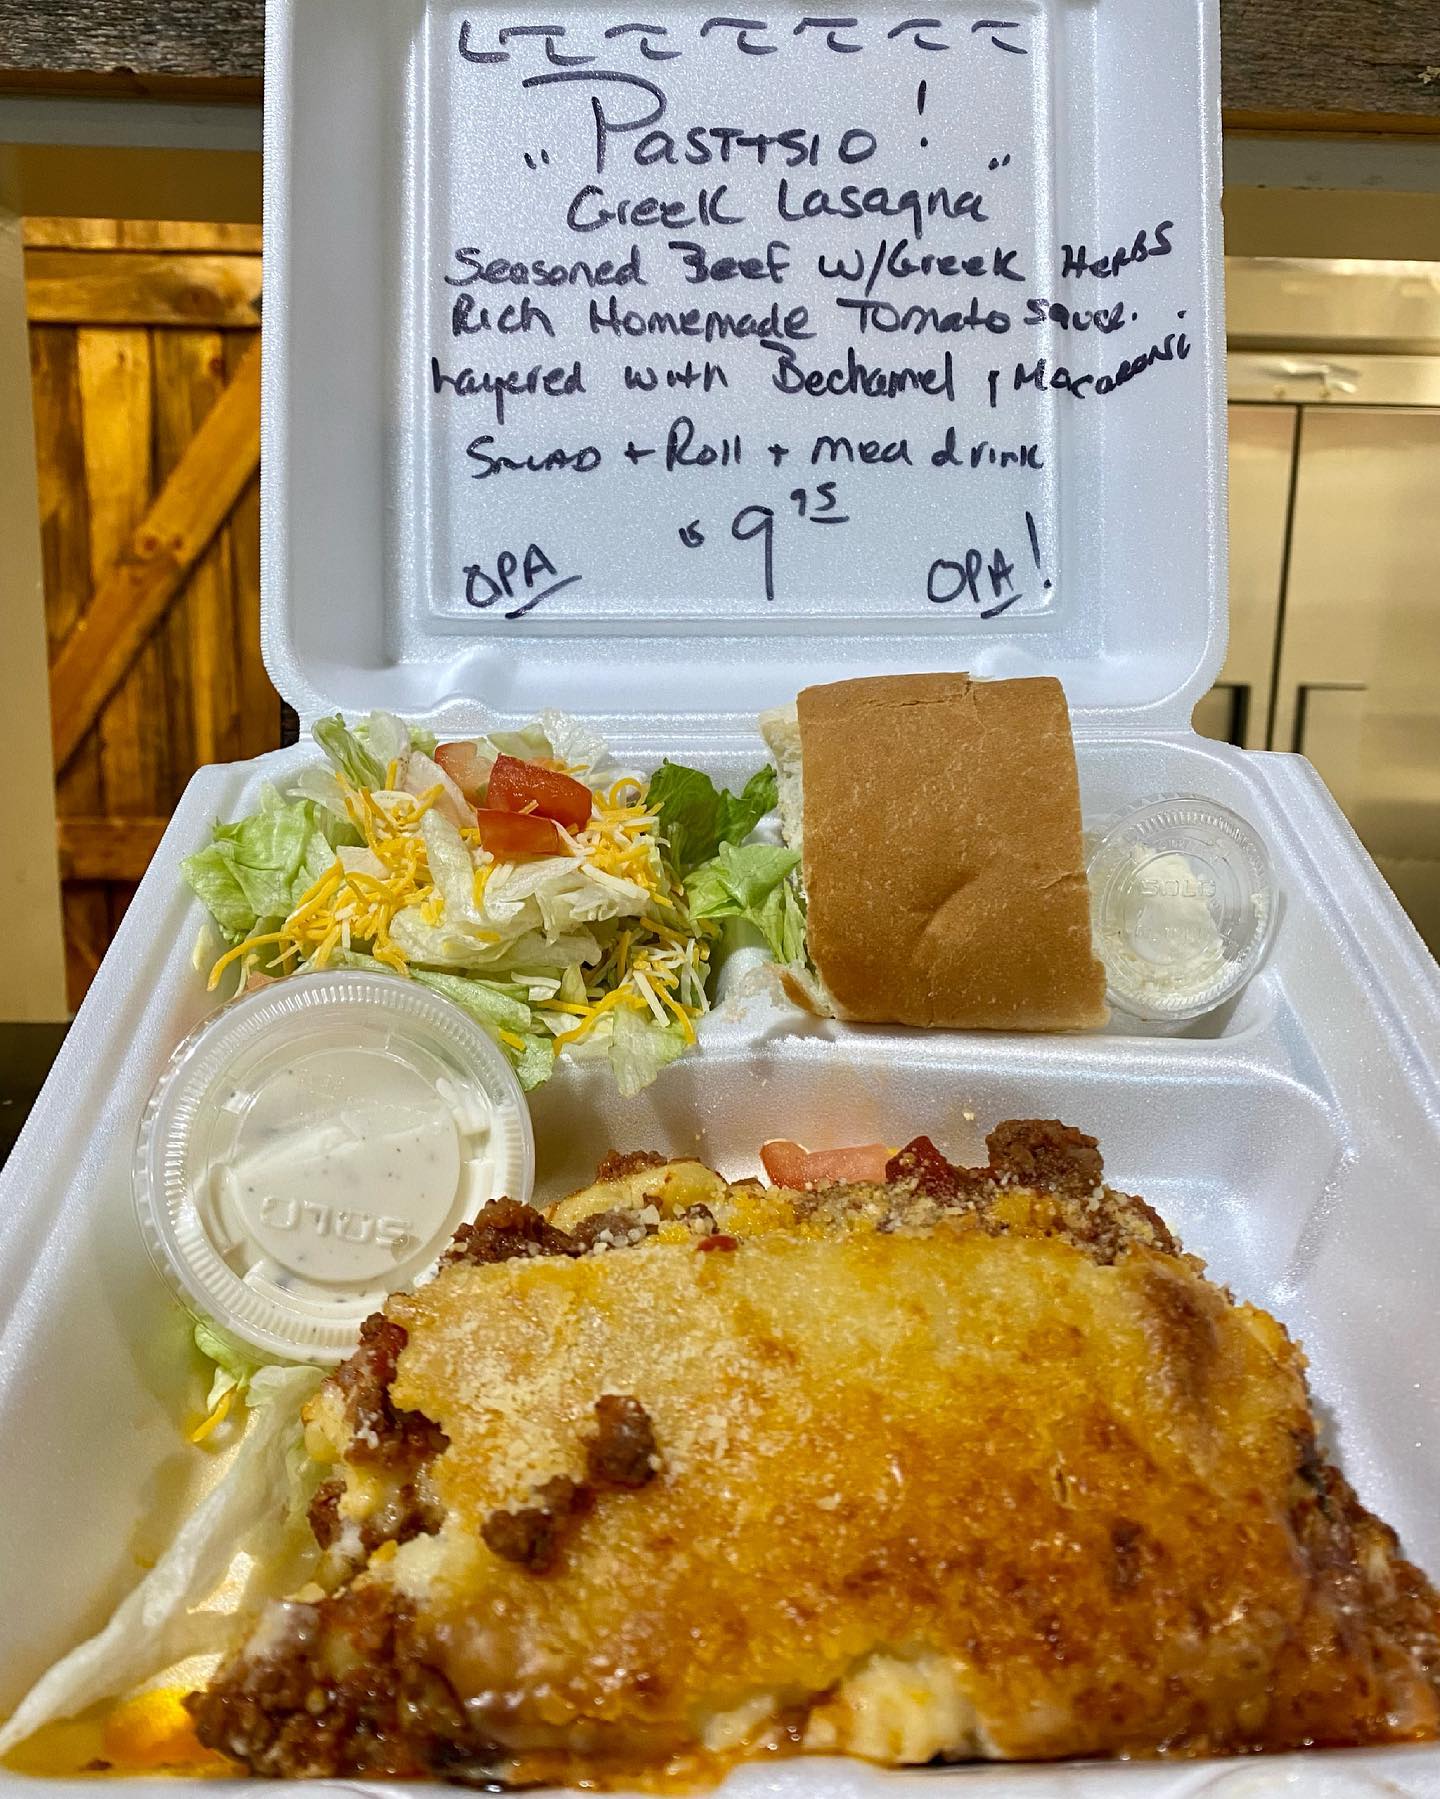 Pastitsio!
"Greek Lasagna"
Seasoned Beef w/Greek Herbs
Rich Homemade Tomato sauce.
Layered with Bechamel, Macaroni
Salad + Roll + med drink
$9 95
OPA OPA!
SOLO
SOLO